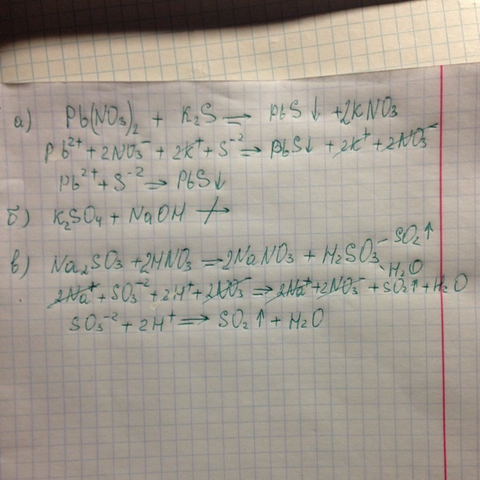 а) Pb(NO₃)₂ + K₂S → PbS↓ + 2KNO₃
Pb²⁺ + 2NO₃⁻ + 2K⁺ + S⁻² ⇒ PbS↓ + 2K⁺ + 2NO₃⁻
Pb²⁺ + S⁻² ⇒ PbS↓
б) K₂SO₄ + NaOH ↛
в) Na₂SO₃ + 2HNO₃ = 2NaNO₃ + H₂SO₃ - SO₂↑
H₂O
2Na⁺ + SO₃⁻² + 2H⁺ + 2NO₃⁻ ⇒ 2Na⁺ + 2NO₃⁻ + SO₂↑ + H₂O
SO₃⁻² + 2H⁺ ⇒ SO₂↑ + H₂O